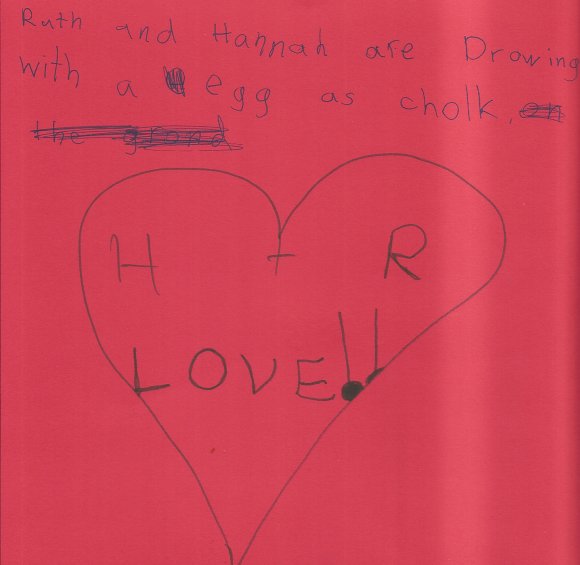 Ruth and Hannah are Drowing
with a egg as cholk. on
the grond
H + R
LOVE!!